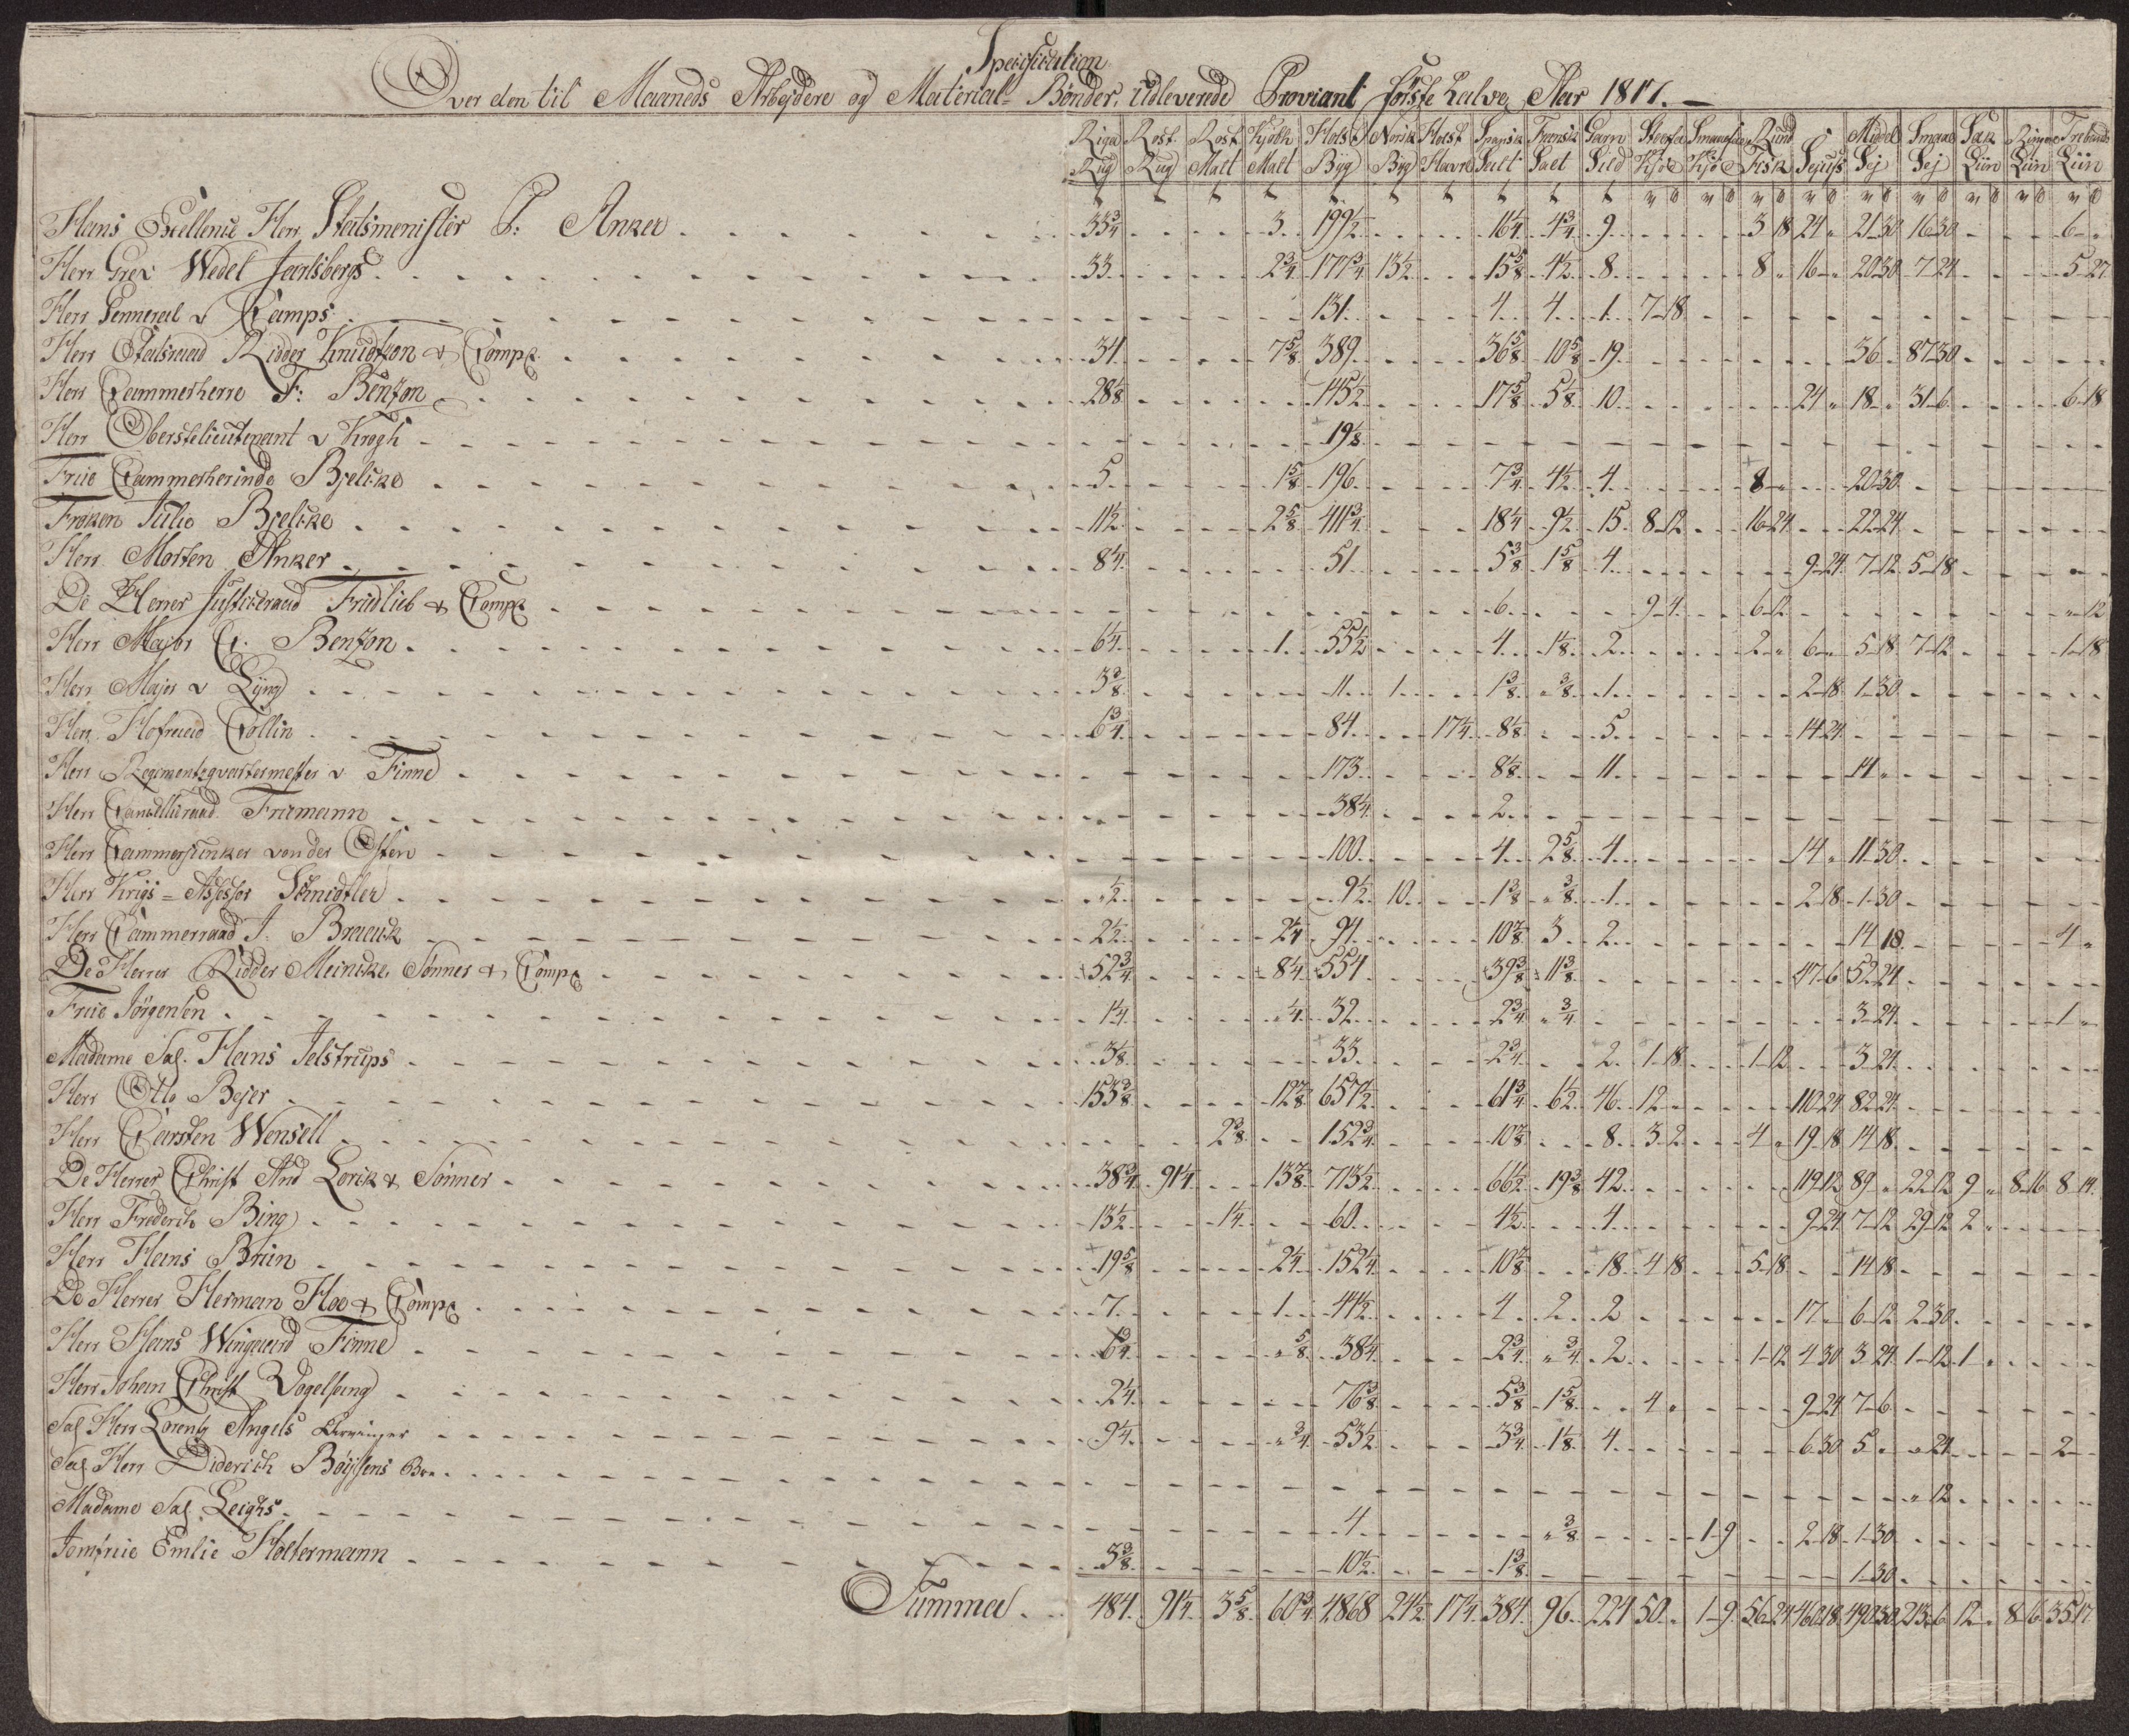 Specification
Over den til Maaneds Arbejdere og Material-Bønder, Udleverede Proviant første halve Aar 1817.
Riga Rug | Rost Rug | Rost Malt | Kjøbh Malt | Holst Byg | Norsk Byg | Holst Havre | Spansk Salt | Fransk Salt | Garn Sild | Kjød | Kjød | Rund Fisk | | Middel Sej | Smaa Sej | | Liin | Trebands Liin
Hans Excellence Herr Statsmenister P: Anker 33 3/4 3 199 1/2 16 1/4 4 3/4 9 3 18 24 " 21 30 16 30 6 "
Herr Grev Wedel Jarlsbergs 33 2 3/4 177 3/4 13 1/2 15 5/8 4 1/2 8 8 " 16 " 20 30 7 24 5 27
Herr Genneral v Camps 131 4 4 1 7 18
Herr Etatsraad Ridder Knudtzon & Comp 34 7 5/8 389 36 5/8 10 5/8 19 36 87 30
Herr Cammerherre F: Bentzon 28 1/8 145 1/2 17 5/8 5 1/8 10 24 " 18 " 31 6 6 18
Herr Oberstelieutenant v Krogh 19 1/8
Frue Cammerherinde Bjelke 5 1 5/8 196 7 3/4 4 1/2 4 8 " 20 30
Frøken Julie Bjelke 11 1/2 2 5/8 411 3/4 18 1/4 9 1/2 15 8 12 16 24 22 24
Herr Morten Anker 8 1/4 51 5 3/8 1 5/8 4 9 24 7 12 5 18
De Herrer Justiceraad Fridlieb & Comp 6 9 4 6 12 " 12
Herr Major C: Bentzon 6 1/4 1 55 1/2 4 1 1/8 2 2 " 6 " 5 18 7 12 1 18
Herr Major v Lyng 3 3/8 11 1 1 3/8 " 3/8 1 2 18 1 30
Herr Hofraad Collin 6 3/4 84 17 1/4 8 1/8 5 14 24
Herr Regementsqvartermester v Finne 173 8 1/8 11 14 "
Herr Cancelliraad Friemann 38 1/4 2
Herr Cammerjunker von der Osten 100 4 2 5/8 4 14 " 11 30
Herr Krigs-Assessor Schnidtler " 1/2 9 1/2 10 1 3/8 " 3/8 1 2 18 1 30
Herr Cammerraad J. Brauck 2 1/2 2 1/4 94 10 7/8 3 2 14 18 4 "
De Herrer Ridder Meincke, Sønner & Comp 52 3/4 8 1/4 554 39 3/8 11 3/8 47 6 52 24
Frue Jörgensen 1 1/4 " 1/4 32 2 3/4 " 3/4 3 24 1 "
Madame Sal. Hans Jelstrups 3 1/8 33 2 3/4 2 1 18 1 12 3 24
Herr Otto Bejer 153 3/8 12 7/8 657 1/2 61 3/4 6 1/2 46 12 110 24 82 24
Herr Carsten Wensell 2 3/8 152 3/4 10 7/8 8 3 2 4 " 19 18 14 18
De Herrer Christ And Lorck & Sønner 38 3/4 91 1/4 13 7/8 713 1/2 66 1/2 19 3/8 42 119 12 89 " 22 12 9 " 8 16 8 14
Herr Frederik Bing 13 1/2 1 1/4 60 4 1/2 4 9 24 7 12 29 12 2 "
Herr Hans Bruin 19 5/8 2 1/4 152 1/4 10 7/8 18 4 18 5 18 14 18
De Herrer Herman Hoe & Comp 7 1 44 1/2 4 2 2 17 " 6 12 2 30
Herr Hans Wingaard Finne 6 3/4 " 5/8 38 1/4 2 3/4 " 3/4 2 1 12 4 30 3 24 1 12 1 "
Herr Johan Christ Vogelsang 2 1/4 76 3/8 5 3/8 1 5/8 4 " 9 24 7 6
Sal Herr Lorentz Angels Arvinger 9 1/4 " 3/4 53 1/2 3 3/4 1 1/8 4 6 30 5 " " 24 2
Sal Herr Diderich Böyssens Boe " 12
Madame Sal. Leighs 4 " 3/8 1 9 2 18 1 30
Jomfrue Emlie Holtermann 3 3/8 10 1/2 1 3/8 1 30
Summa 484 91 1/4 3 5/8 60 3/4 4868 24 1/2 17 1/4 384 96 224 50 " 1 9 56 24 460 18 490 30 213 6 12 " 8 6 35 17